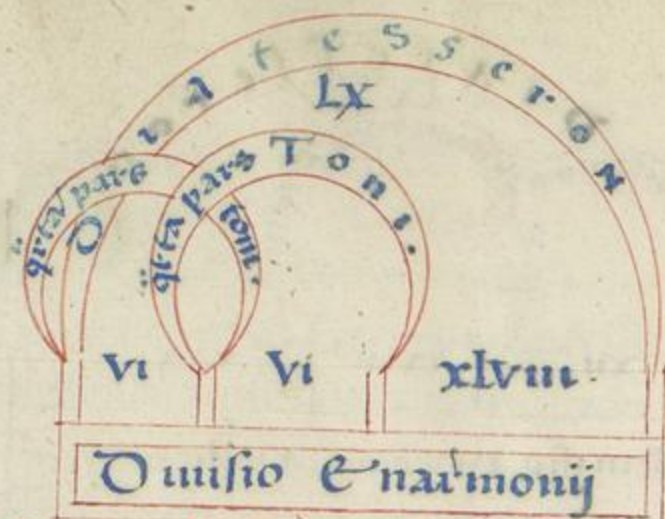 Diatesseron
LX
qrta pars toni.
qrta pars Toni.
VI VI xlviii.
Diuisio Enarmonij